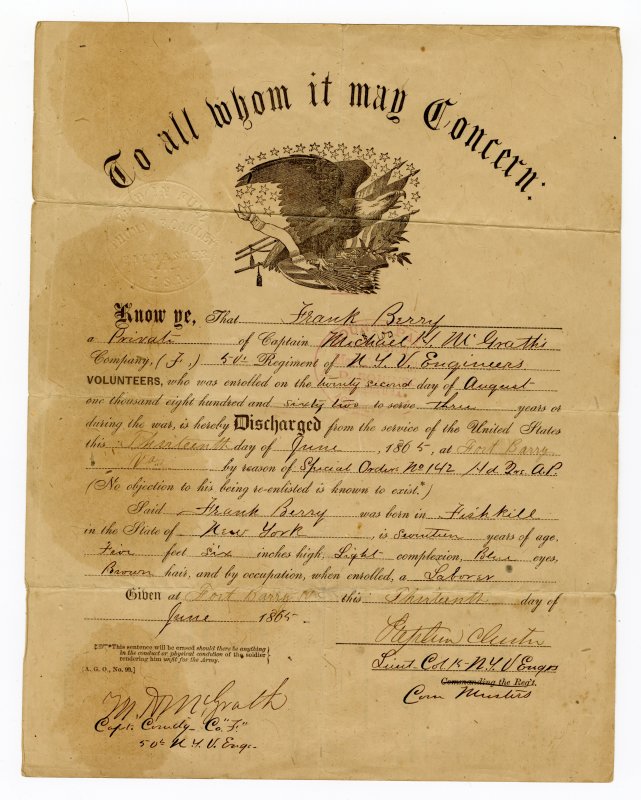 To all whom it may Concern:
Know ye, That Frank Berry
a Private of Captain Michael H. McGrath's
Company, (F.) 50th Regiment of N.Y.V. Engineers
VOLUNTEERS, who was enrolled on the twenty second day of August
one thousand eight hundred and sixty two to serve three years or
during the war, is hereby Discharged from the service of the United States
this Thirteenth day of June, 1865, at Fort Barry
Va by reason of Special Orders No 142 Hd Qrs A.P.
(No objection to his being re-enlisted is known to exist.*)
Said Frank Berry was born in Fishkill
in the State of New York, is Seventeen years of age,
Five feet six inches high, Light complexion, Blue eyes,
Brown hair, and by occupation, when enrolled, a Laborer
Given at Fort Barry Va this Thirteenth day of
June 1865.
*This sentence will be erased should there be anything
in the conduct or physical condition of the soldier
rendering him unfit for the Army.
[A. G. O., No. 99.]
Lieut Col N.Y.V. Engrs
Commanding the Reg't.
Com Musters
McGrath
Capt. Comdg Co. "F."
50th N.Y.V. Eng.